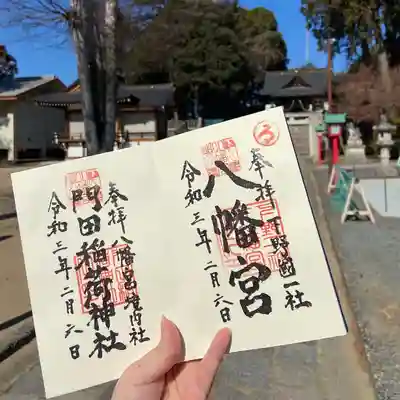 奉拝 下野國一社
八幡宮
令和三年二月六日
奉拝 八幡宮境内社
門田稲荷神社
令和三年二月六日